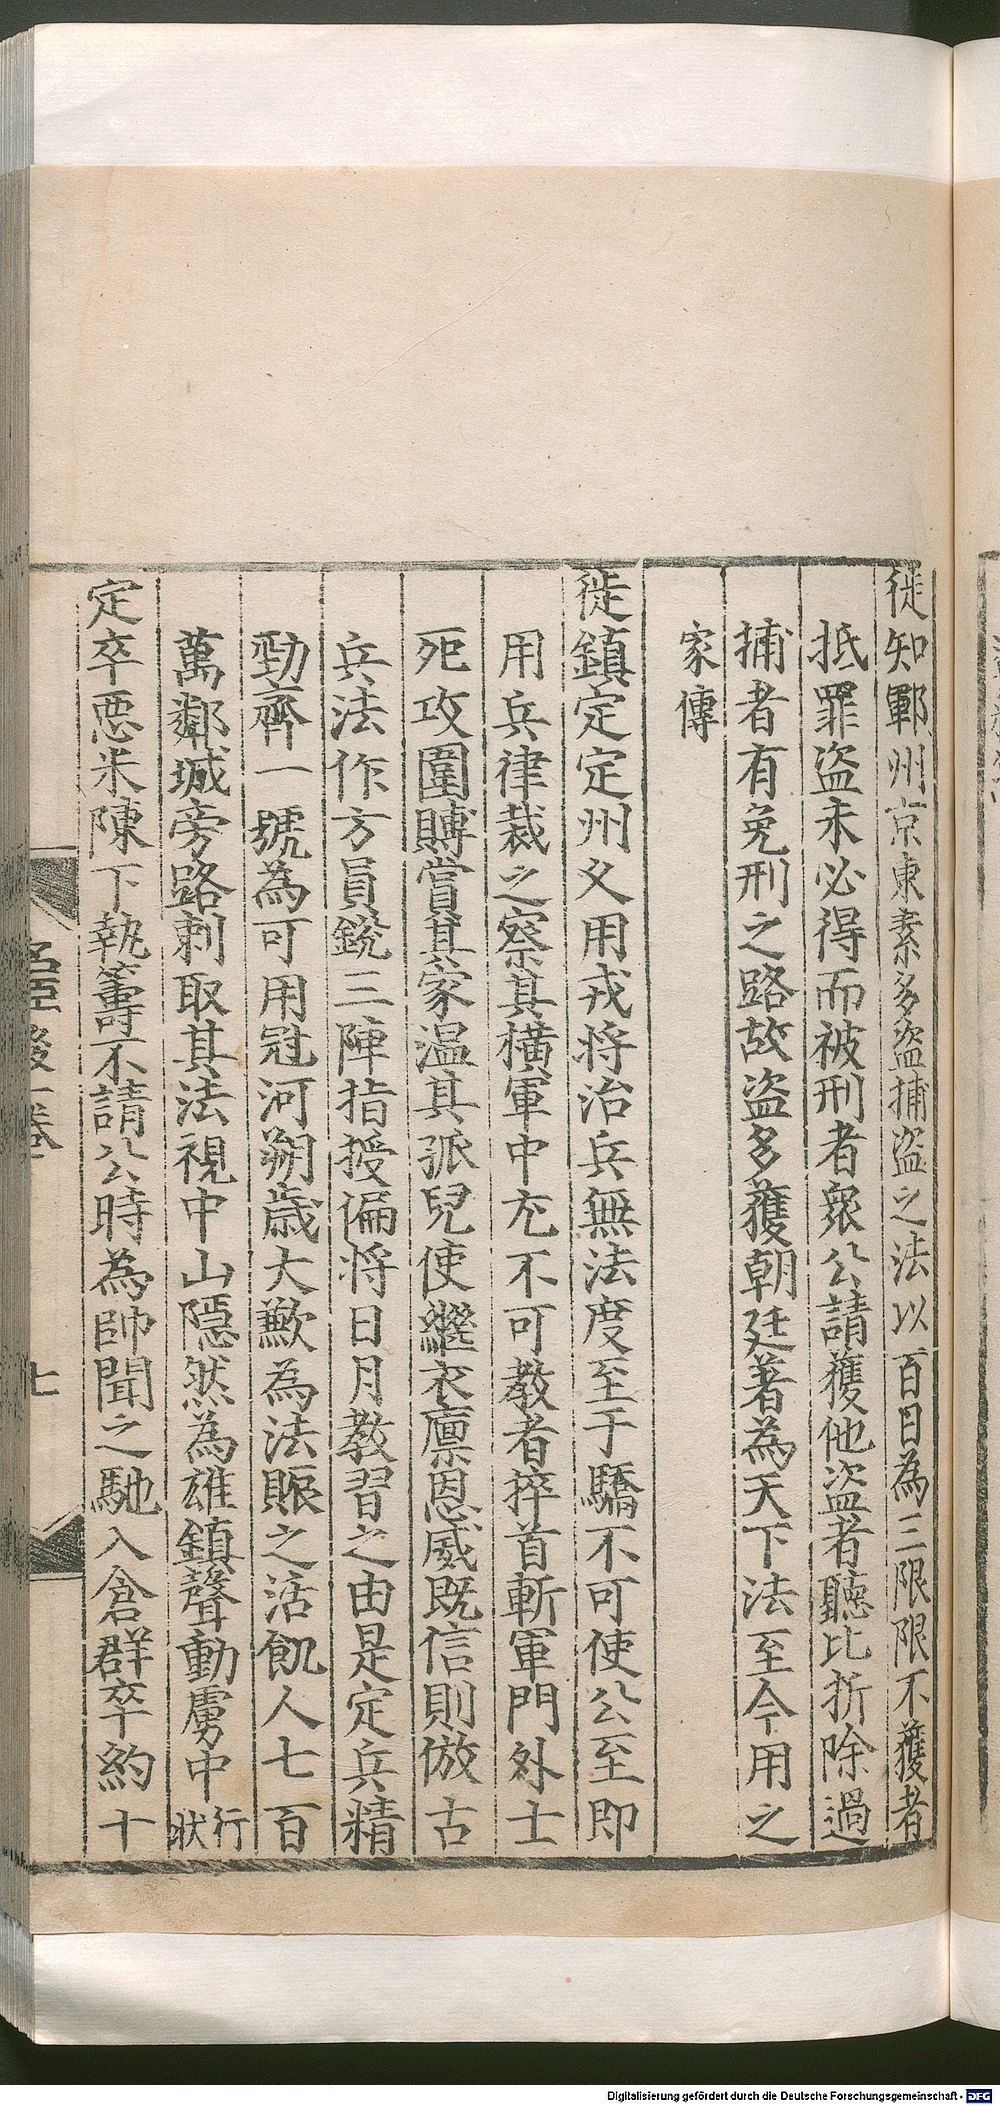 徙知鄆州京東素多盜捕盜之法以百日為三限限不獲者
抵罪盜未必得而被刑者衆公請獲他盜者聽比折除過
捕者有免刑之路故盜多獲朝廷著為天下法至今用之
家傳
徙鎮定定州乆用戎將治兵無法度至于驕不可使公至即
用兵律裁之察其橫軍中尤不可教者捽首斬軍門外士
死攻圍賻賞其家温其孤兒使繼衣廪恩威既信則倣古
兵法作方員銳三陣指授偏將日月教習之由是定兵精
勁齊一號為可用冠河朔歲大歉為法賑之活飢人七百
萬鄰城旁路刺取其法視中山隱然為雄鎮聲動虜中行狀
定卒惡米陳下執籌不請公時為帥聞之馳入倉群卒約十
名臣後一卷
七
Digitalisierung gefördert durch die Deutsche Forschungsgemeinschaft - DFG